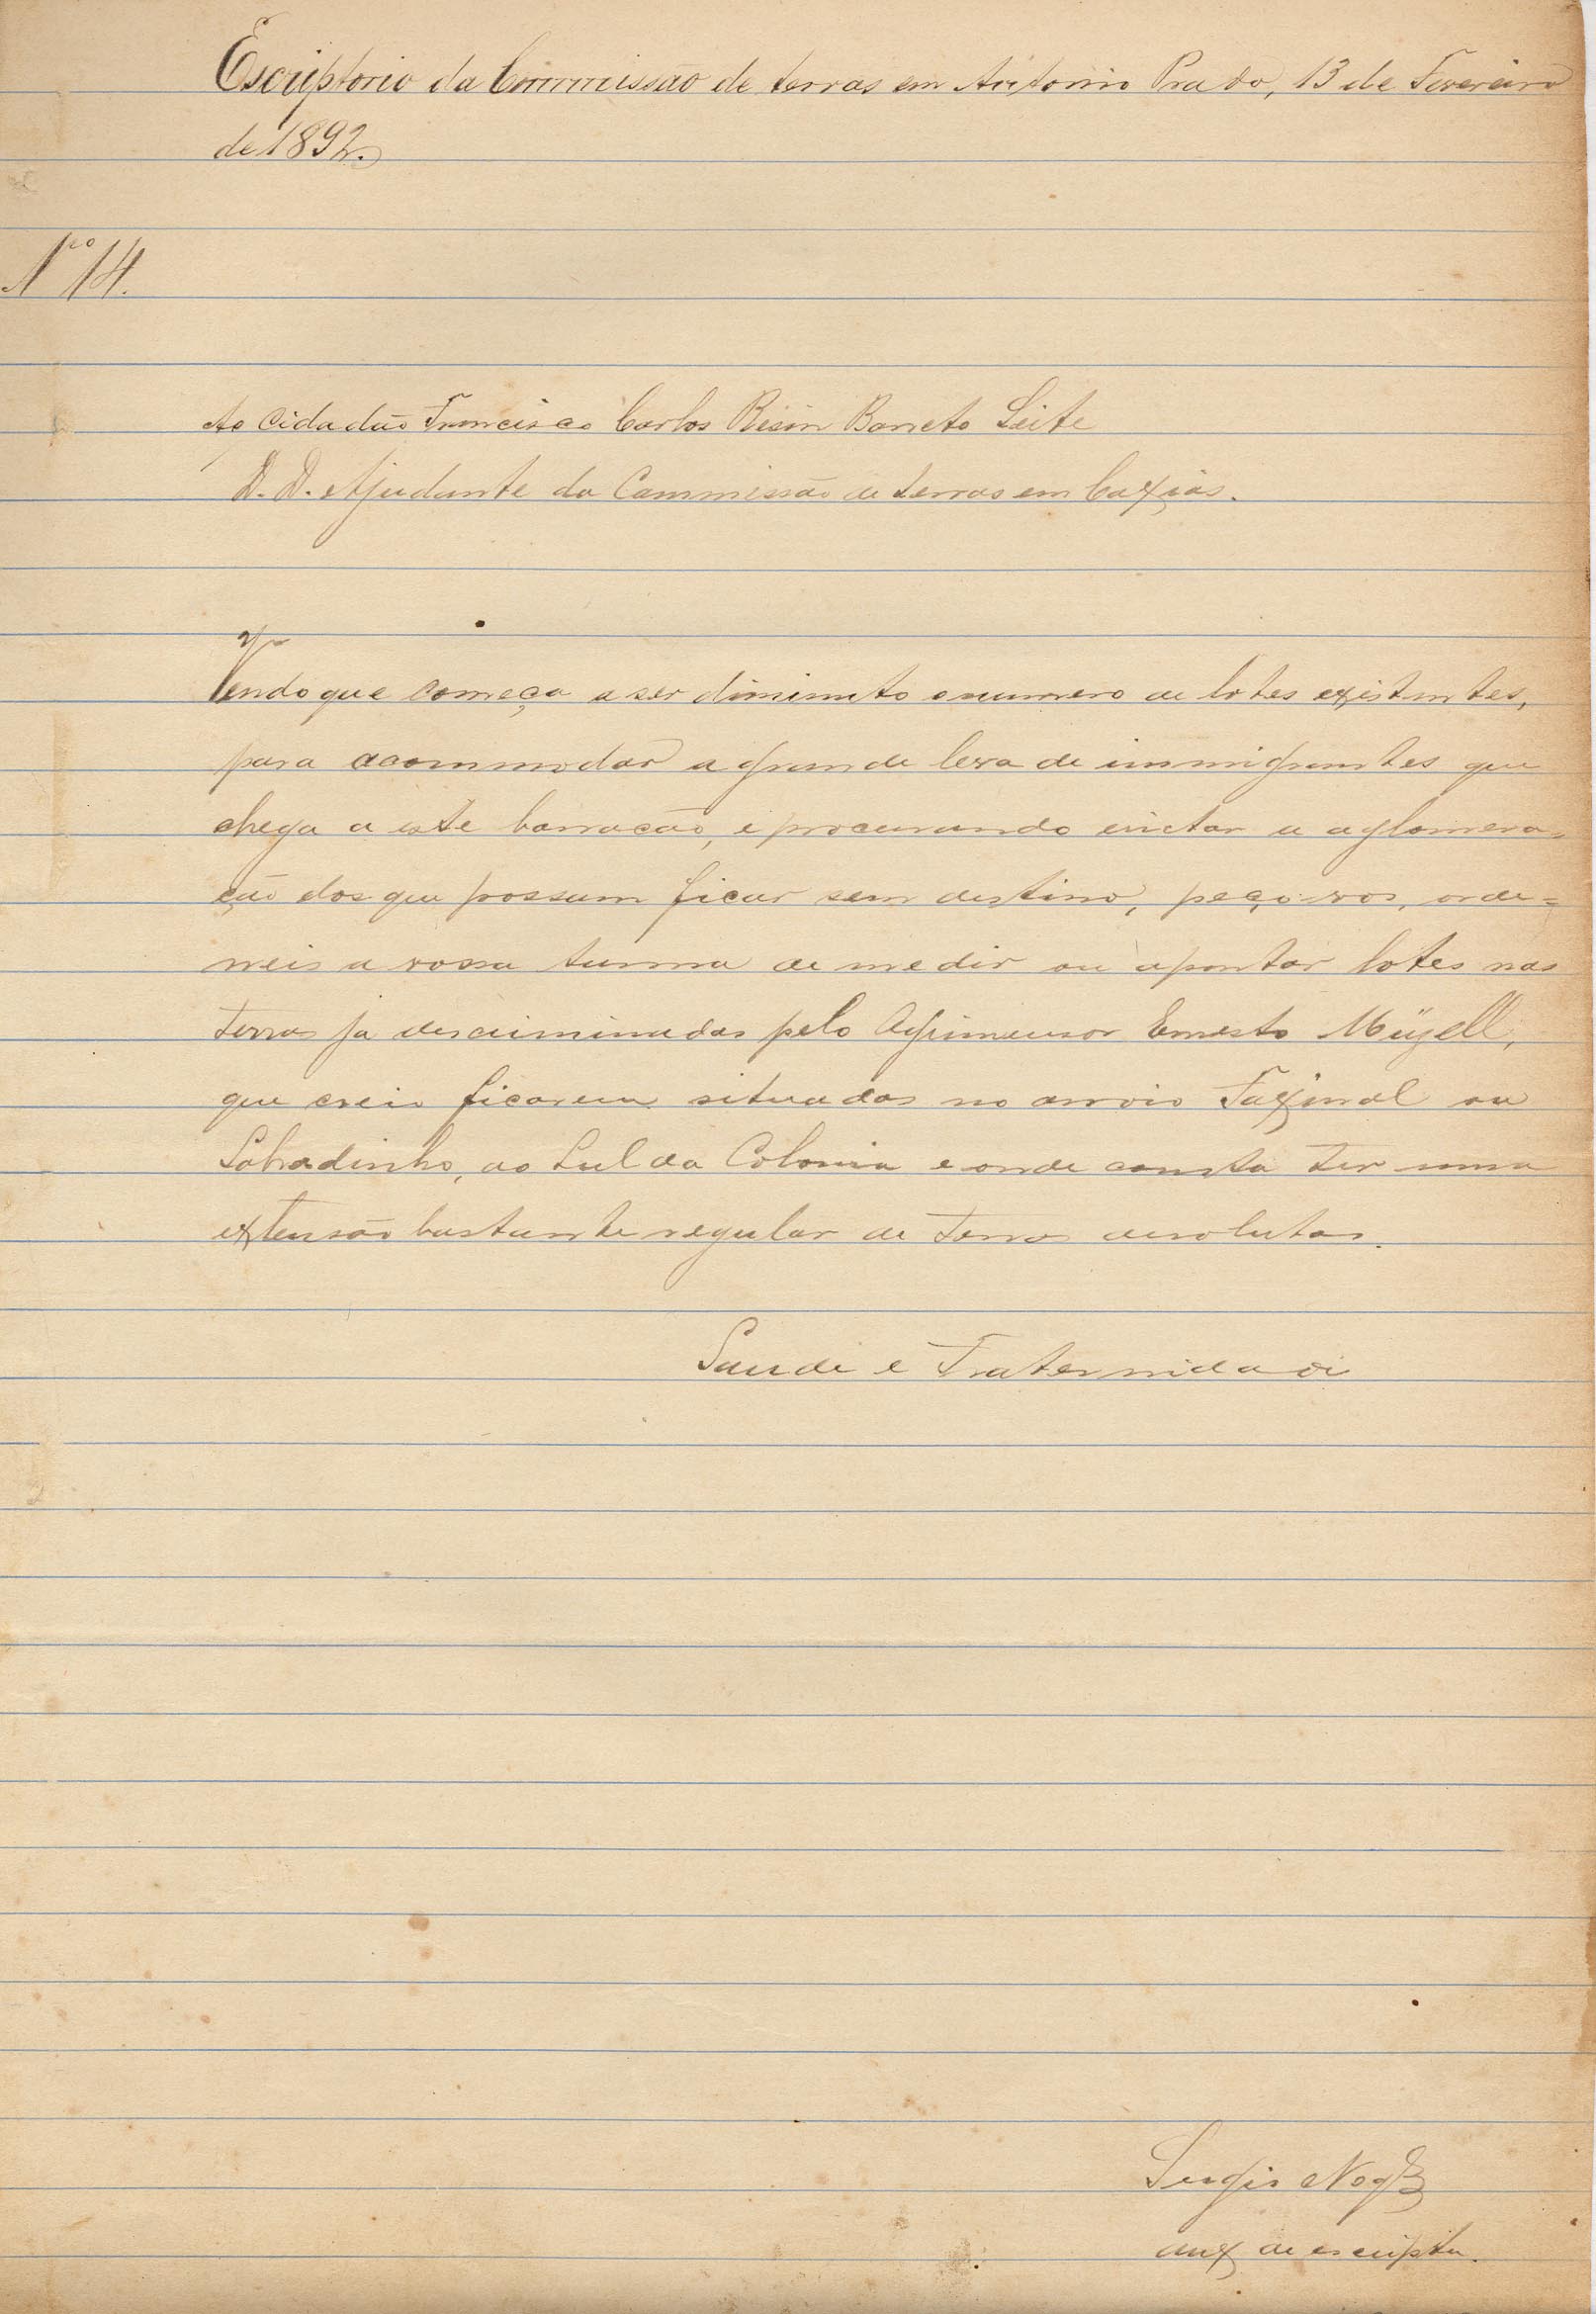 Escriptorio da Commissão de terras em Antonio Prado, 13 de Fevereiro
de 1892.
Nº 14.
Ao Cidadão Francisco Carlos Barreto Leite
D. D. Ajudante da Commissão de terras em Caxias.
Vendo que começa a ser diminuto o numero de lotes existentes,
para acommodar a grande leva de immigrantes que
chega a este barracão, e procurando evictar a aglomera-
ção dos que possam ficar sem destino, peço-vos, orde=
neis a vossa turma de medir ou apontar lotes nas
terras ja descriminadas pelo Agrimensor Ernesto Müzell,
que creio ficarem situadas no arroio Faxinal ou
Sobradinho, ao Sul da Colonia e onde consta ter uma
extensão bastante regular de terras devolutas.
Saude e Fraternidade
Sergio
aux de escripta.